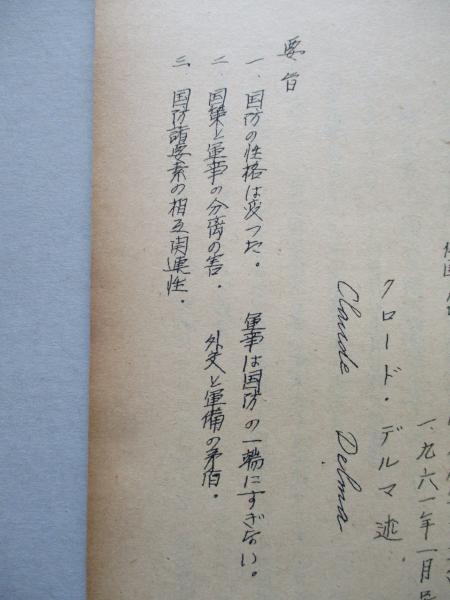 一九六一年一月
クロード・デルマ述
Claude Delma
要旨
一、国防の性格は変つた。 軍事は国防の一端にすぎない。
二 国策と軍事の分離の害. 外交と軍備の矛盾.
三、国防諸要素の相互関連性.